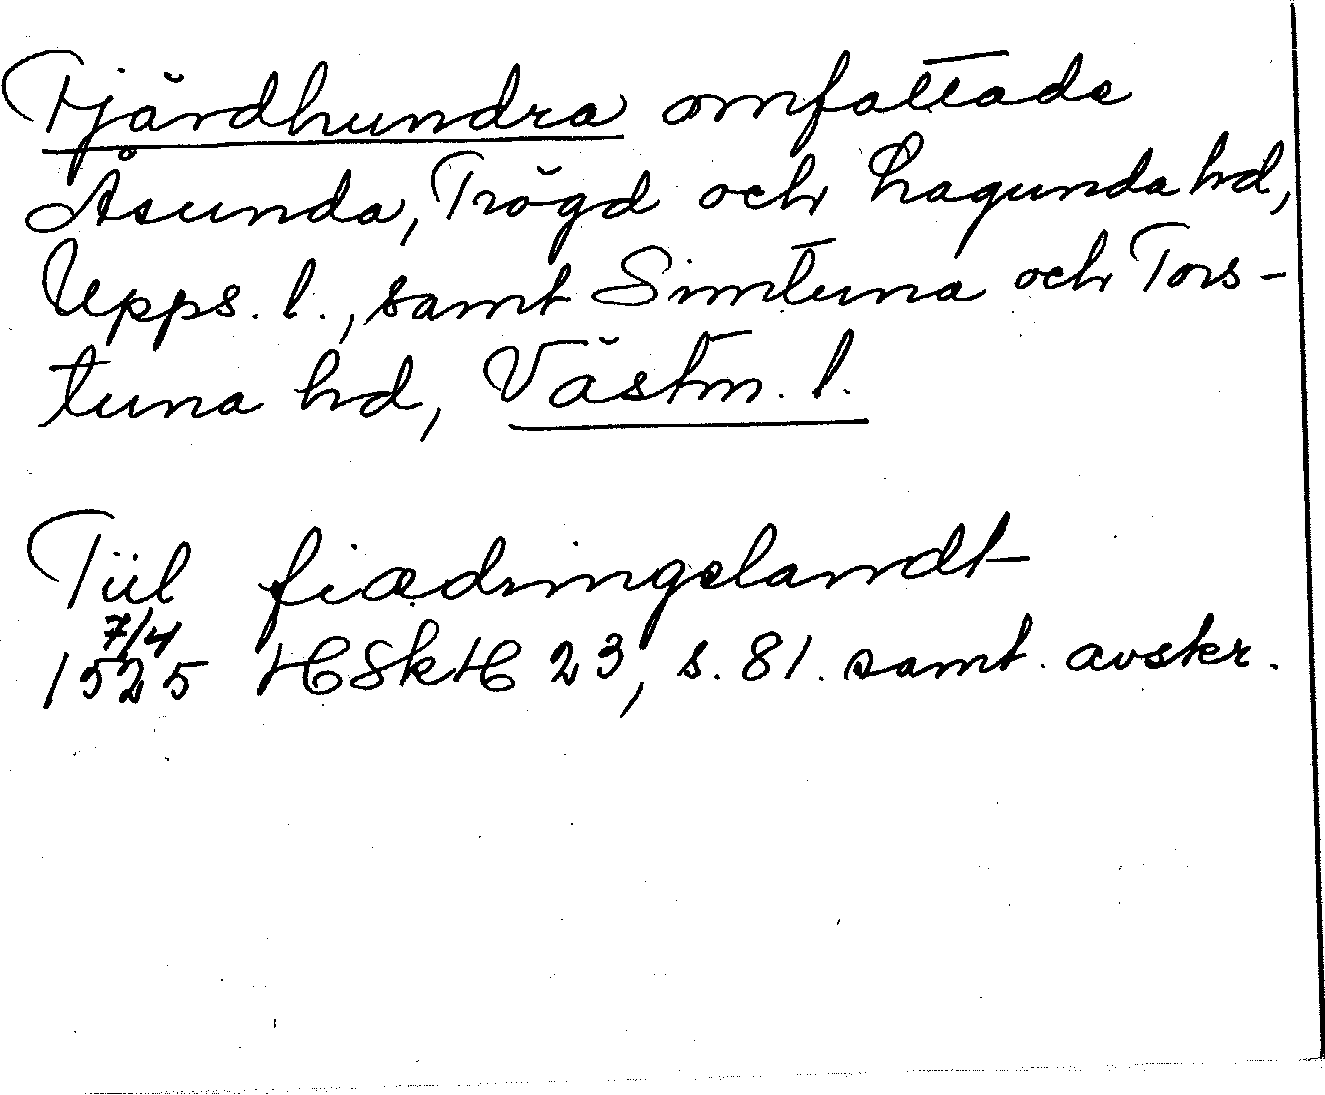 Fjärdhundra omfattade
Åsunda, Trögd och Lagunda hd,
Upps. l., samt Simtuna och Tors-
tuna hd, Västm. l.
Tiil fiædringslandt
7/4
1525 HSkH 23, s. 81. samt. avskr.